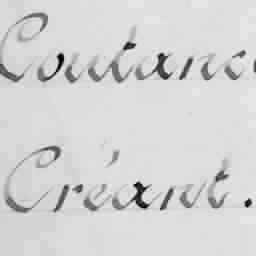 Coutanc
Créant.